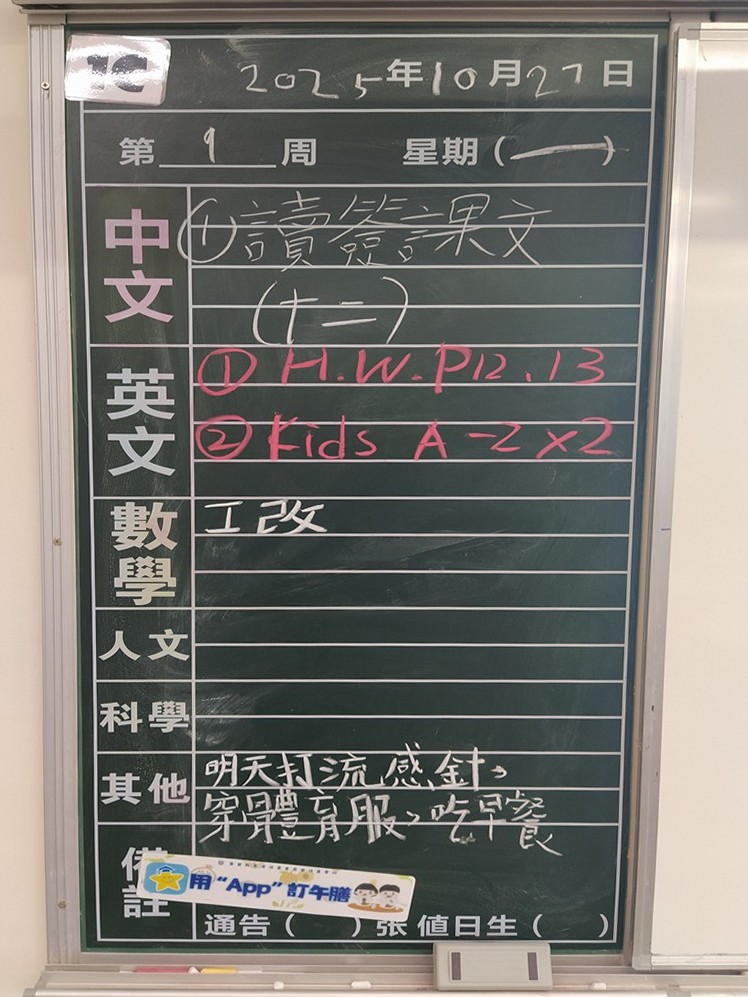 1C
2025年10月27日
第 9 周 星期(一)
中文
①讀簽課文
(十二)
英文
① H.W. P12、13
② Kids A-Z x2
數學
工改
人文
科學
其他
明天打流感針，
穿體育服，吃早餐
備註
用“App”訂午膳
通告( )張 值日生( )